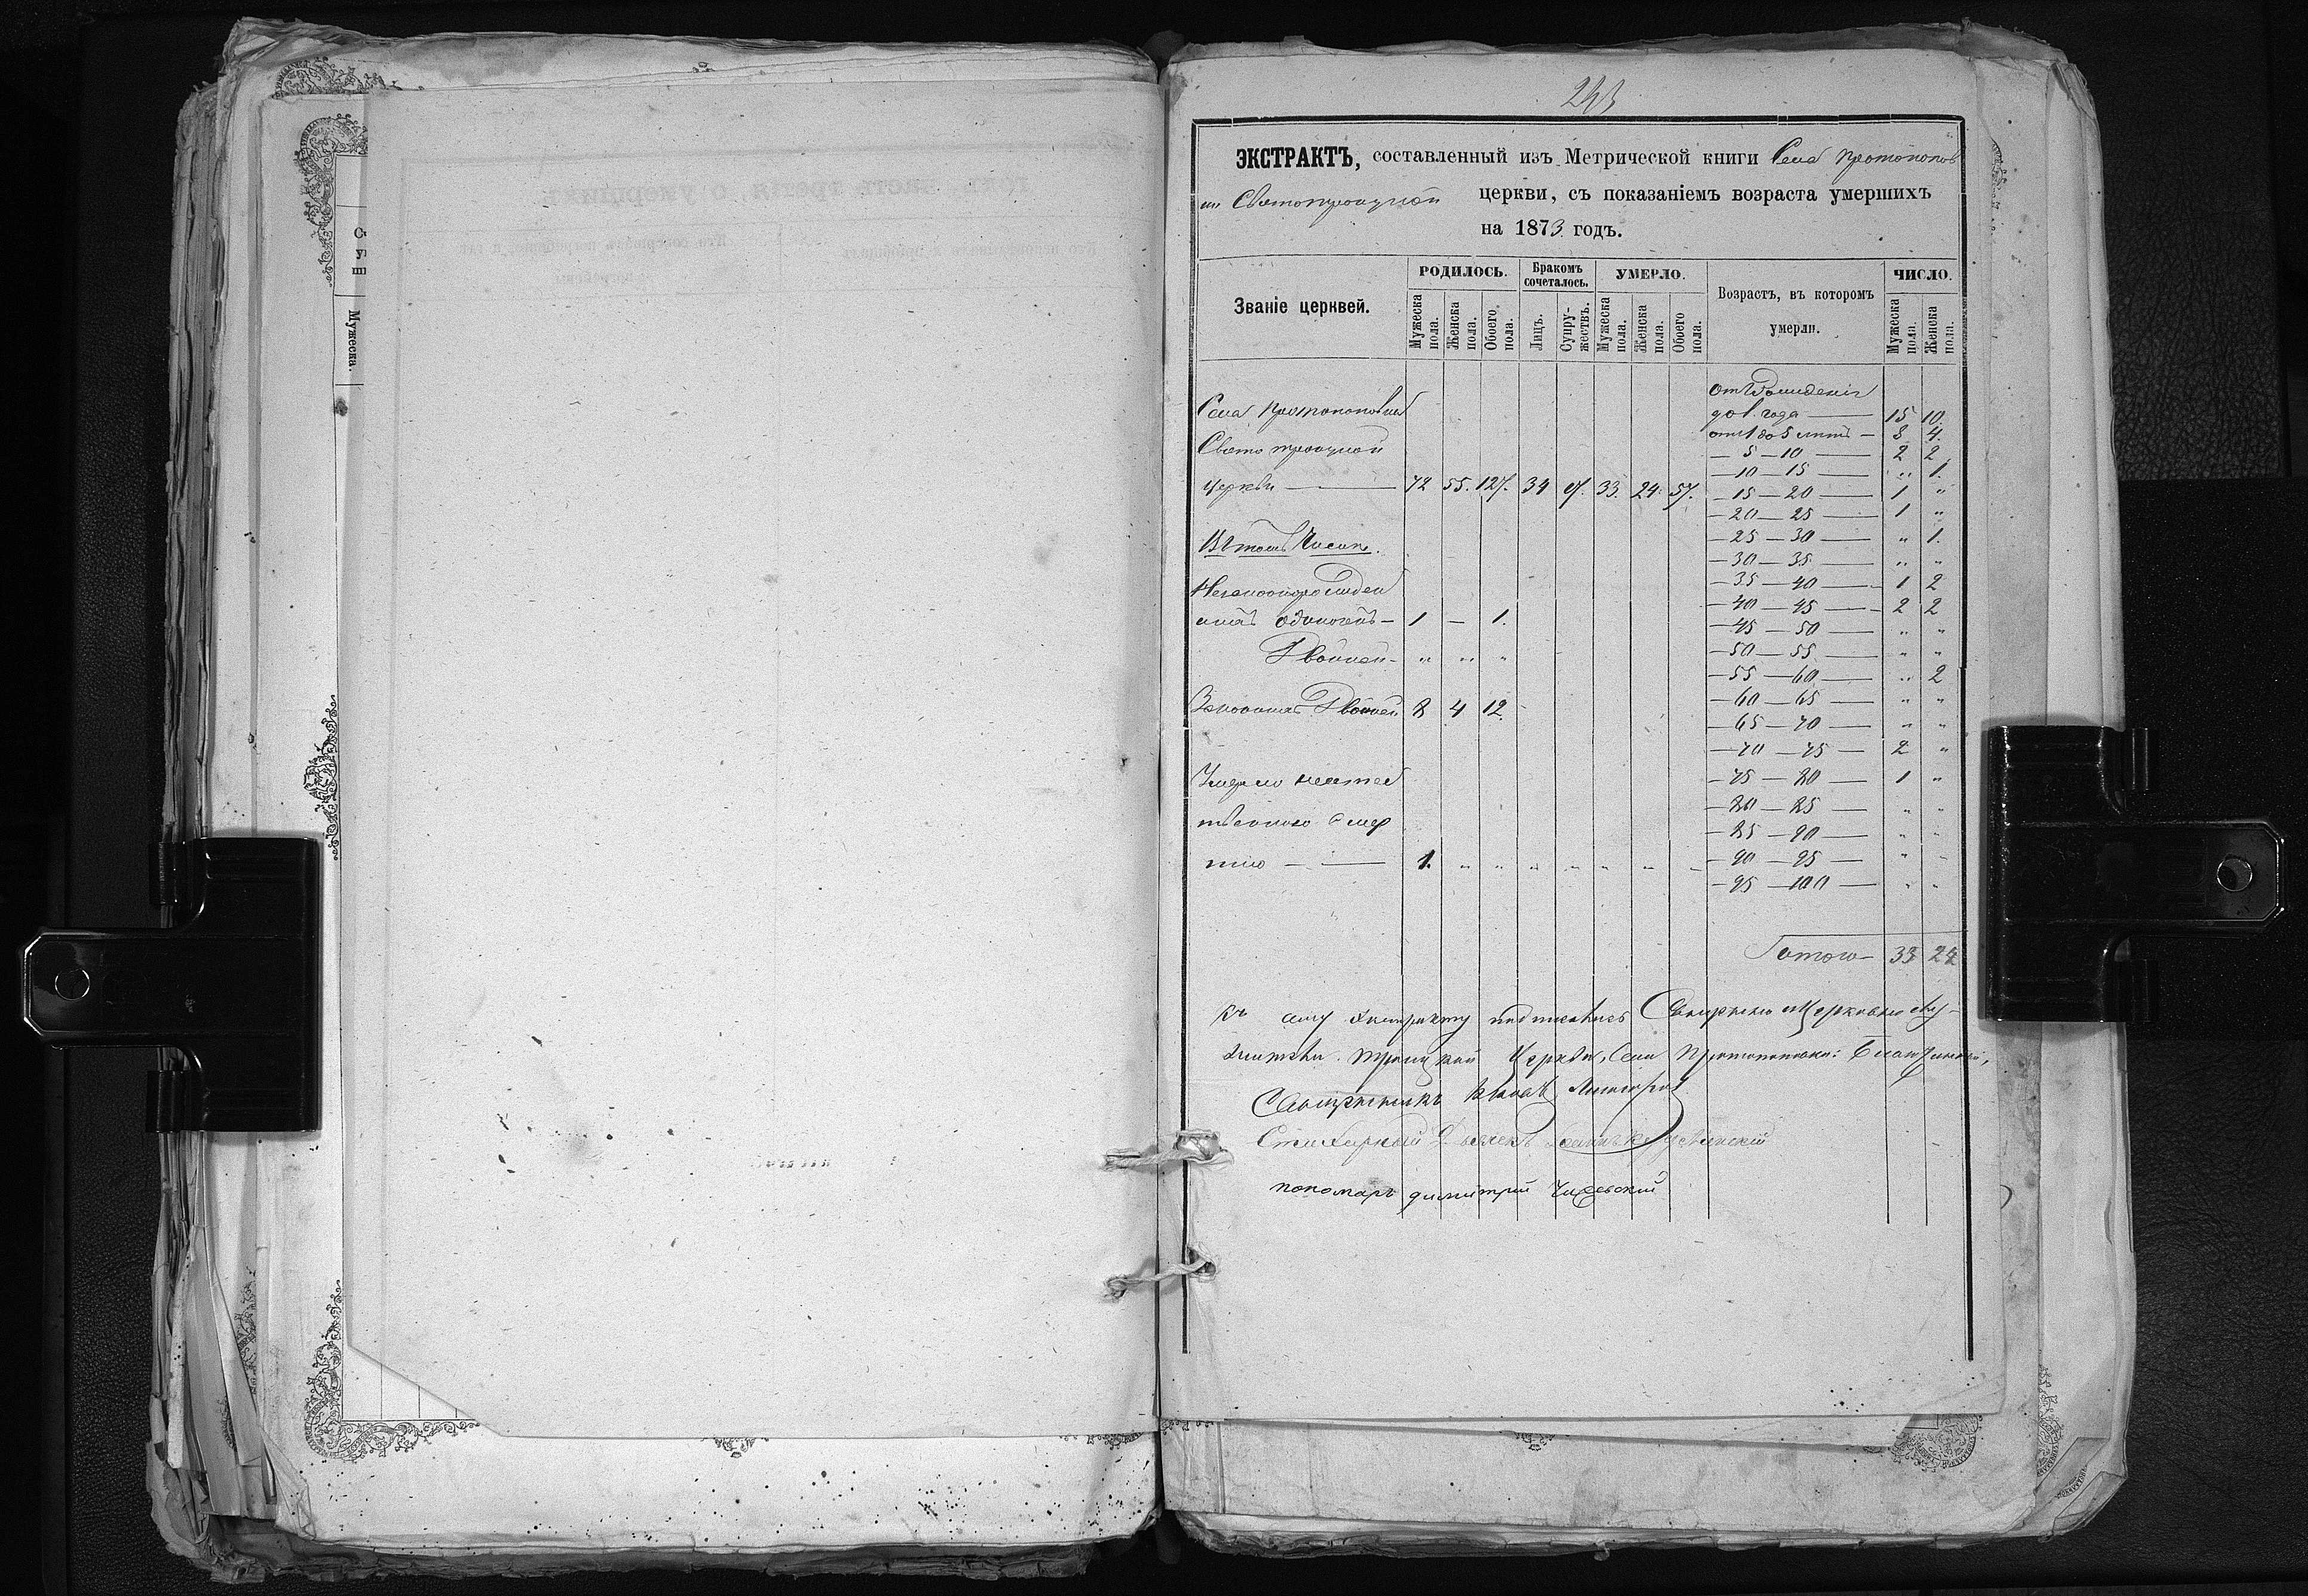 ЭКСТРАКТЪ, составленный изъ Метрической книги Села Протопопов
ки Святотроицкой церкви, съ показаніемъ возраста умершихъ
на 1873 годъ.
Званіе церквей.
РОДИЛОСЬ.
Мужеска пола.
Женска пола.
Обоего пола.
Бракомъ сочеталось.
Лицъ.
Супружествъ.
УМЕРЛО.
Мужеска пола.
Женска пола.
Обоего пола.
Возрастъ, въ которомъ умерли.
ЧИСЛО.
Мужеска пола.
Женска пола.
Села Протопоповки
Свято троицкой
церкви — 72 55. 127. 34 17. 33. 24. 57.
Въ томъ Числѣ.
одиночекъ — 1 — 1.
Двойней — „ „ „
Двойней 8 4 12.
Умерло неестес
твенною смер
тію — 1. „ „ „ „ „ „ „
отъ рожденія
до 1. года — 15 10.
отъ 1 до 5 лѣтъ — 8 4.
— 5 — 10 — 2 2
— 10 — 15 — „ 1.
— 15 — 20 — 1 „
— 20 — 25 — 1 „
— 25 — 30 — „ 1.
— 30 — 35 — „ „
— 35 — 40 — 1 2
— 40 — 45 — 2 2
— 45 — 50 — „ „
— 50 — 55 — „ „
— 55 — 60 — „ 2
— 60 — 65 — „ „
— 65 — 70 — „ „
— 70 — 75 — 2 „
— 75 — 80 — 1 „
— 80 — 85 — „ „
— 85 — 90 — „ „
— 90 — 95 — „ „
— 95 — 100 — „ „
Итого — 33 24
Къ сему Экстракту подписались Священно и Церковно слу-
жители Троицкой Церкви, Села Протопоповки:
Священникъ
Стихарный Дьячекъ
пономарь димитрій
Мужеска.